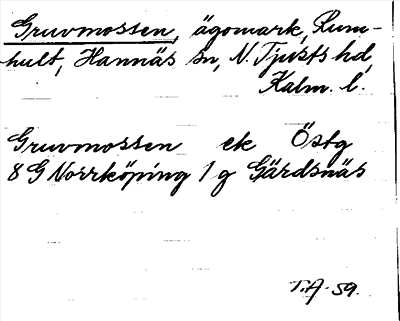 Gruvmossen, ägomark, Rum-
hult, Hannäs sn, N. Tjusts hd,
Kalm. l.
Gruvmossen ek Östg
8 G Norrköping 1 g Gärdsnäs
T.A. 59.